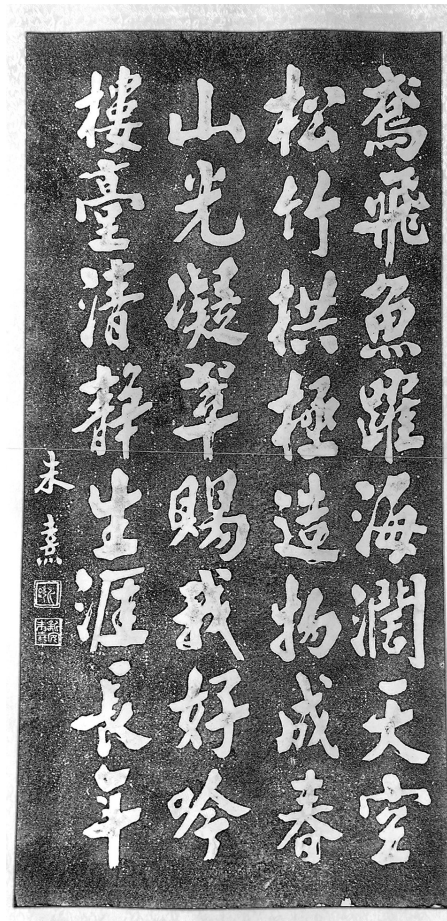 鳶飛魚躍海濶天空
松竹拱極造物成春
山光凝翠賜我好吟
樓臺清靜生涯長年
朱熹